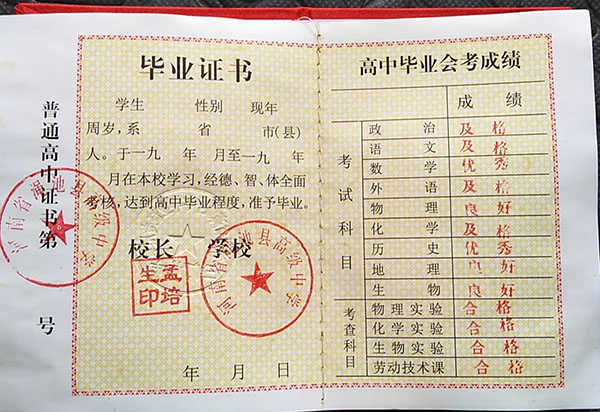 毕业证书
学生 性别 现年
周岁,系 省 市(县)
人。于一九 年 月至一九 年
月在本校学习,经德、智、体全面
考核,达到高中毕业程度,准予毕业。
校长 学校
孟培生印
河南省渑池县高级中学
年 月 日
普通高中证书第 号
河南省渑池县高级中学
高中毕业会考成绩
成绩
考试科目
政治 及格
语文 及格
数学 优秀
外语 及格
物理 良好
化学 及格
历史 优秀
地理 良好
生物 良好
考查科目
物理实验 合格
化学实验 合格
生物实验 合格
劳动技术课 合格